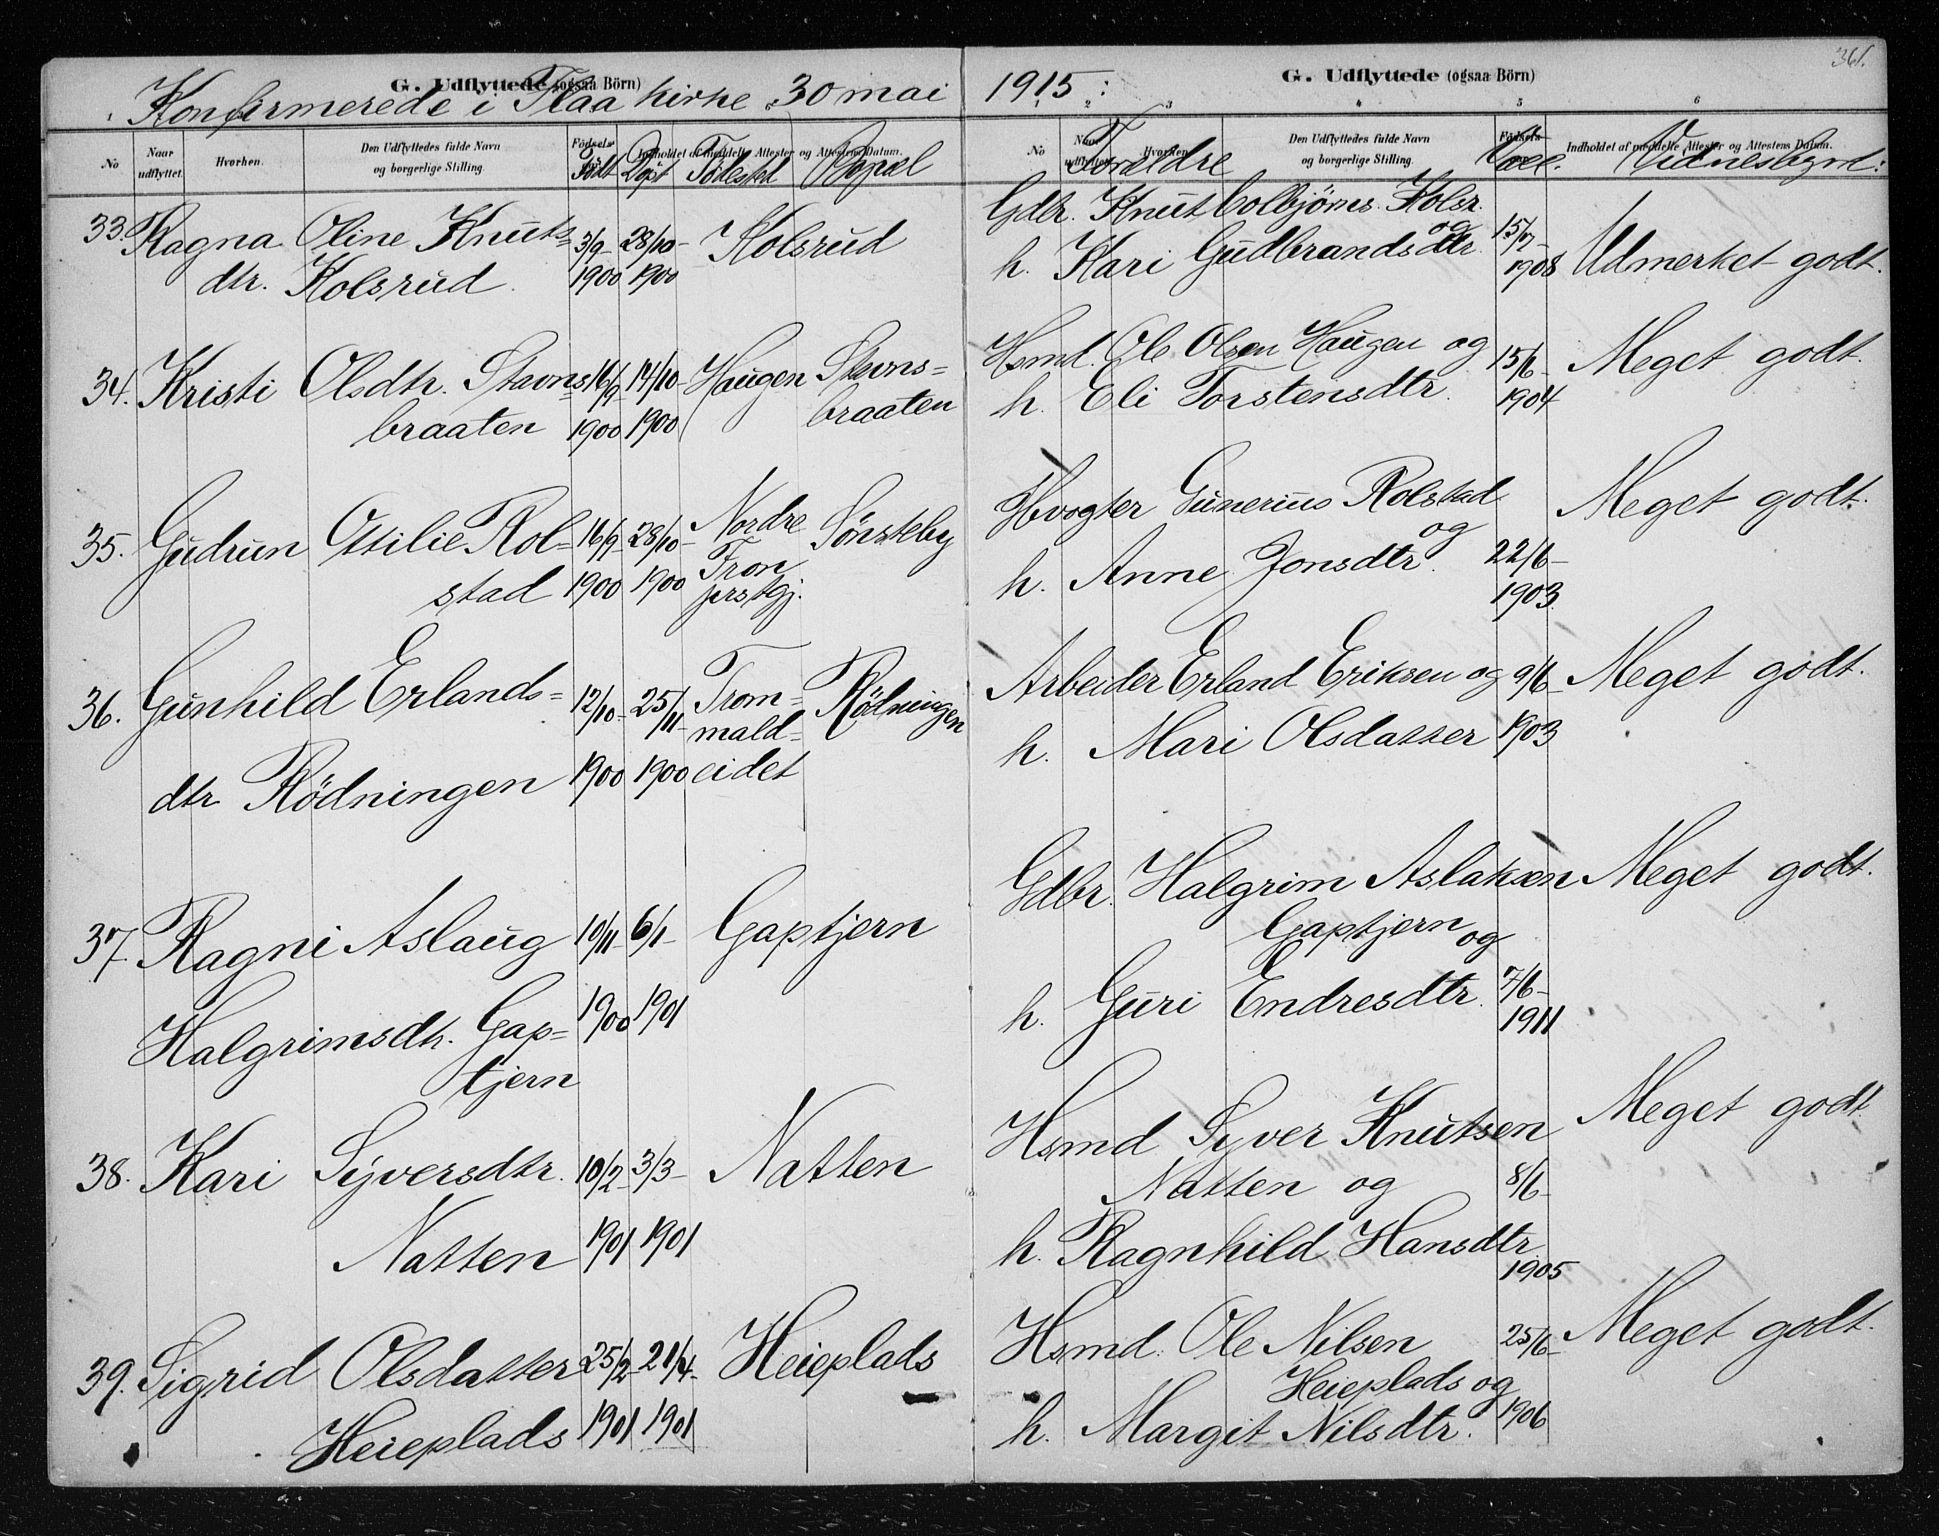 361.
G. Udflyttede (ogsaa Börn)
G. Udflyttede (ogsaa Börn)
Konfirmerede i Flaa kirke 30 mai 1915:
1 2 3 4 5 6
No
Naar udflyttet.
Hvorhen.
Den Udflyttedes fulde Navn
og borgerlige Stilling.
Födsels-
Indholdet af meddelte Attester og Attestens Datum.
Födt
Döpt
Födested
Bopæl
No
Naar udflyttet.
Hvorhen.
Den Udflyttedes fulde Navn
og borgerlige Stilling.
Födsels-
Indholdet af meddelte Attester og Attestens Datum.
Forældre
Vacc.
Vidnesbyrd:
33. Ragna Oline Knuts= 3/9- 28/10- Kolsrud
dtr. Kolsrud 1900 1900
Gdbr. Knut Colbjörns. Kolsr.
og 15/7-
h. Kari Gudbrandsdtr. 1908 Udmerket godt.
34. Kristi Olsdtr. Stavns= 16/9 14/10- Haugen Stavns=
braaten 1900 1900 braaten
Hsmd. Ole Olsen Haugen og 15/6- Meget godt.
h. Eli Torstensdtr. 1904
35. Gudrun Ottilie Rol- 16/9- 28/10- Nordre Sörsteby
stad 1900 1900 Tron
prstgj.
Hvogter Gunerius Rolstad Meget godt.
og
h. Anne Jonsdtr. 22/6-
1903
36. Gunhild Erlands= 12/10- 25/11- Trom= Rödningen
mald=
dtr Rödningen 1900 1900 eidet
Arbeider Erland Eriksen og 9/6- Meget godt.
h. Mari Olsdatter 1903
37. Ragni Aslaug 10/11- 6/1- Gaptjern
Halgrimsdtr. Gap= 1900 1901
tjern
Gdbr. Halgrim Aslaksen Meget godt.
Gaptjern og
h. Guri Endresdtr. 7/6-
1911
38. Kari Syversdtr. 10/2- 3/3- Natten
Natten 1901 1901
Hsmd Syver Knutsen Meget godt
Natten og 8/6-
h. Ragnhild Hansdtr.
1905
39. Sigrid Olsdatter 25/2- 21/4- Heieplads
Heieplads 1901 1901
Hsmd. Ole Nilsen 25/6- Meget godt.
Heieplads og
h. Margit Nilsdtr. 1906